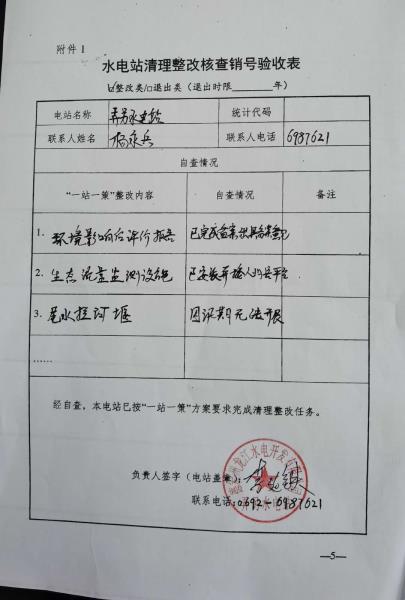 附件 1
水电站清理整改核查销号验收表
☑整改类/□退出类（退出时限______年）
电站名称 弄另水电站 统计代码
联系人姓名 杨永兵 联系人电话 6987621
自查情况
“一站一策”整改内容 自查情况 备注
1. 环境影响后评价报告 已完成
2. 生态流量监测设施 已安装并接入
3. 尾水拦河堰 因汛期无法开展
……
经自查，本电站已按“一站一策”方案要求完成清理整改任务。
负责人签字（电站盖章）：
联系电话：0692-6987621
龙江水电开发
—5—